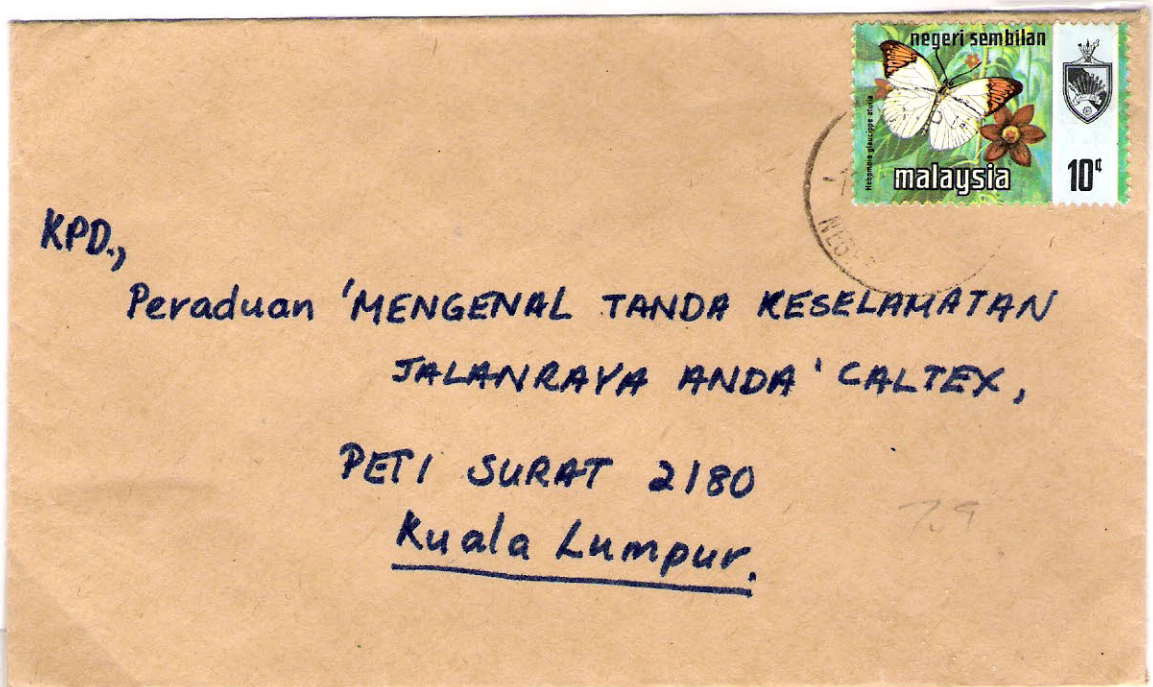 negeri sembilan
Hebomoia glaucippe aturia
malaysia
10¢
KPD.,
Peraduan 'MENGENAL TANDA KESELAMATAN
JALANRAYA ANDA' CALTEX,
PETI SURAT 2180
Kuala Lumpur.